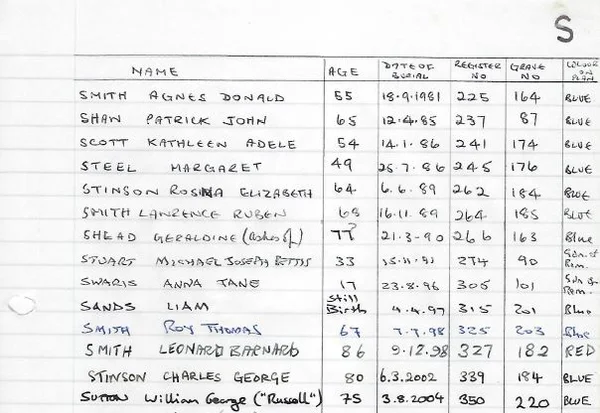 S
NAME AGE DATE OF BURIAL REGISTER NO GRAVE NO COLOUR ON PLAN
SMITH AGNES DONALD 55 18.9.1981 225 164 BLUE
SHAW PATRICK JOHN 65 12.4.85 237 87 BLUE
SCOTT KATHLEEN ADELE 54 14.1.86 241 174 BLUE
STEEL MARGARET 49 25.7.86 245 176 BLUE
STINSON ROSINA ELIZABETH 64 6.6.89 262 184 BLUE
SMITH LAWRENCE RUBEN 68 16.11.89 264 185 BLUE
SHEAD GERALDINE (ashes of) 77 21-3-90 266 163 Blue
STUART MICHAEL JOSEPH 33 274 90 Gdn. of Rem.
SWARIS ANNA JANE 17 23.8.96 305 101 Gdn of Rem.
SANDS LIAM Still Birth 4.4.97 315 201 Blue
SMITH ROY THOMAS 67 7.7.98 325 203 Blue
SMITH LEONARD BARNARD 86 9.12.98 327 182 RED
STINSON CHARLES GEORGE 80 6.3.2002 339 184 BLUE
SUTTON William George ("Russell") 75 3.8.2004 350 220 BLUE